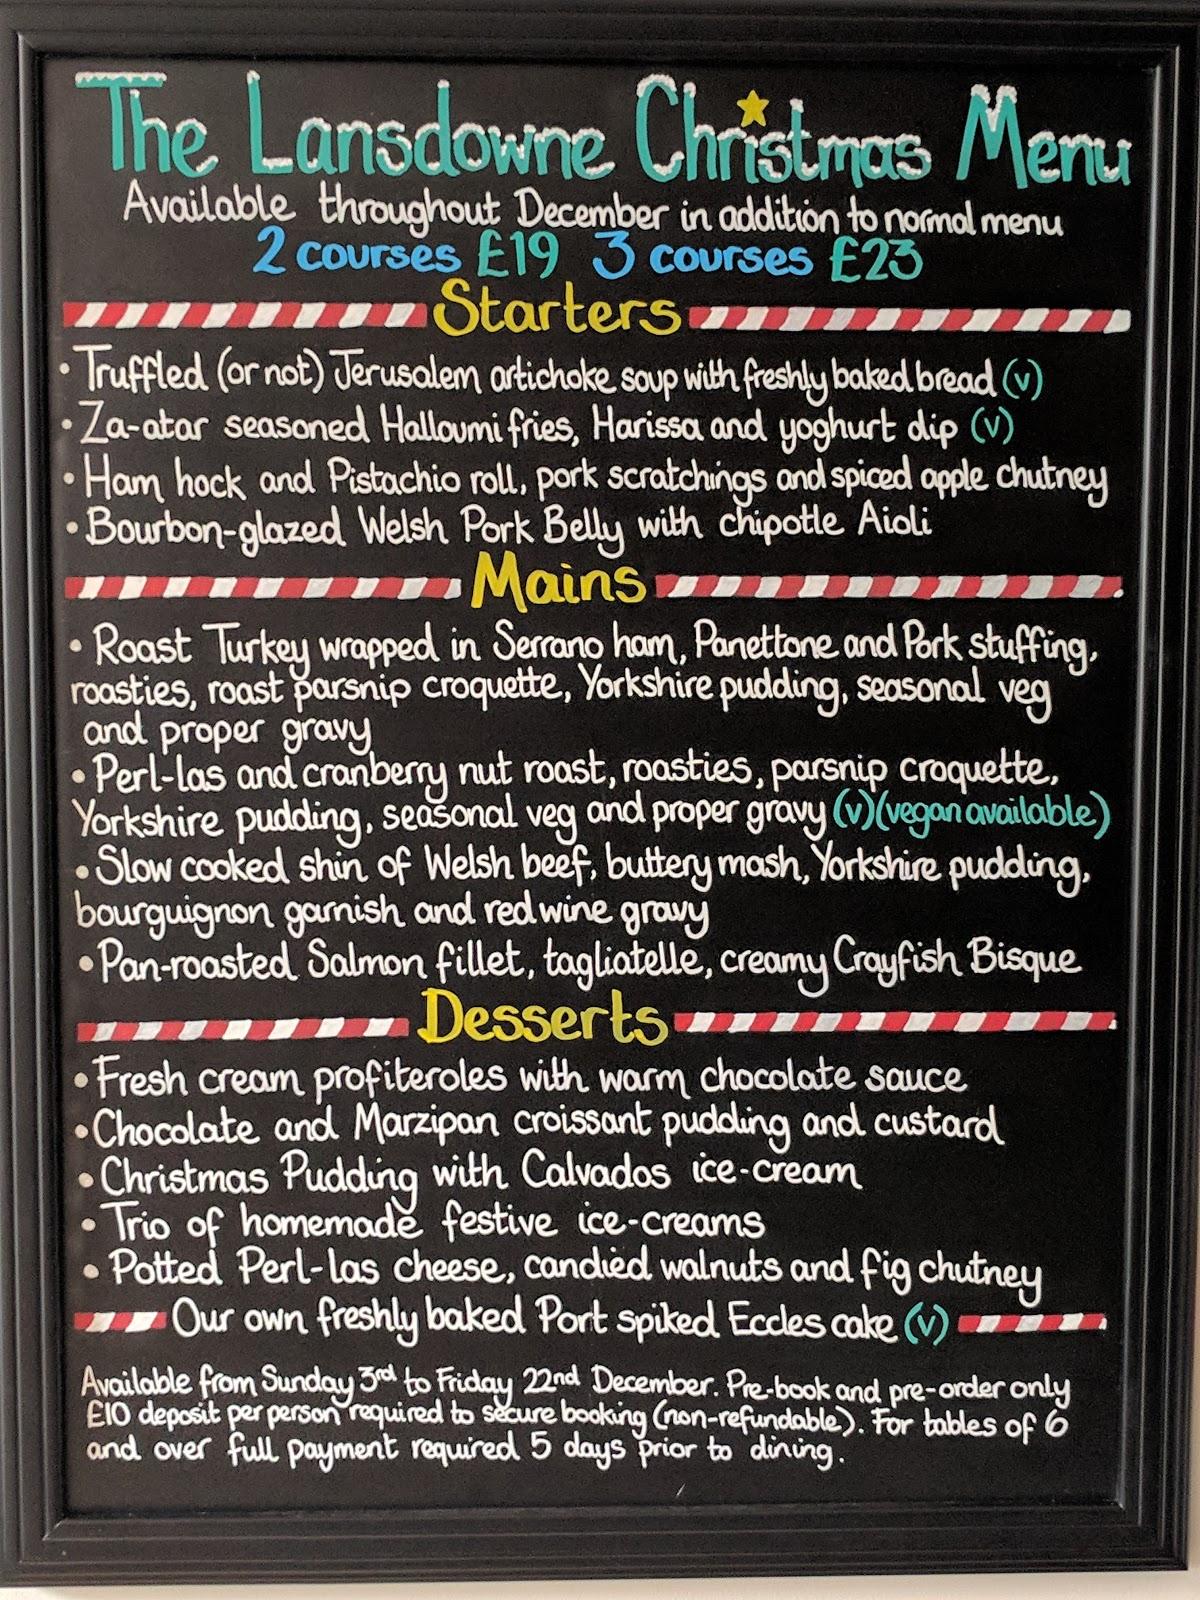 The Lansdowne Christmas Menu
Available throughout December in addition to normal menu
2 courses £19 3 courses £23
Starters
• Truffled (or not) Jerusalem artichoke soup with freshly baked bread (v)
• Za-atar seasoned Halloumi fries, Harissa and yoghurt dip (v)
• Ham hock and Pistachio roll, pork scratchings and spiced apple chutney
• Bourbon-glazed Welsh Pork Belly with chipotle Aioli
Mains
• Roast Turkey wrapped in Serrano ham, Panettone and Pork stuffing,
roasties, roast parsnip croquette, Yorkshire pudding, seasonal veg
and proper gravy
• Perl-las and cranberry nut roast, roasties, parsnip croquette,
Yorkshire pudding, seasonal veg and proper gravy (v)(vegan available)
• Slow cooked shin of Welsh beef, buttery mash, Yorkshire pudding,
bourguignon garnish and red wine gravy
• Pan-roasted Salmon fillet, tagliatelle, creamy Crayfish Bisque
Desserts
• Fresh cream profiteroles with warm chocolate sauce
• Chocolate and Marzipan croissant pudding and custard
• Christmas Pudding with Calvados ice-cream
• Trio of homemade festive ice-creams
• Potted Perl-las cheese, candied walnuts and fig chutney
Our own freshly baked Port spiked Eccles cake (v)
Available from Sunday 3rd to Friday 22nd December. Pre-book and pre-order only
£10 deposit per person required to secure booking (non-refundable). For tables of 6
and over full payment required 5 days prior to dining.